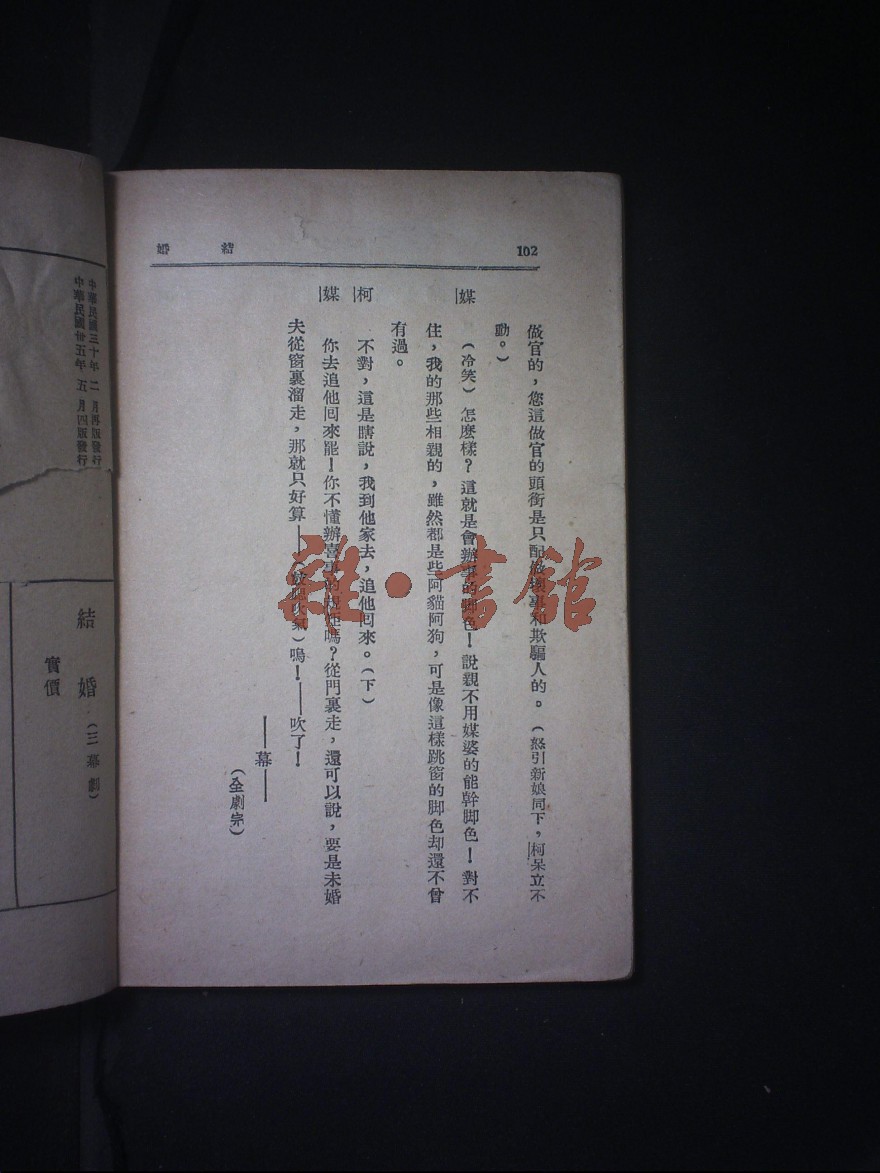 102
結婚
做官的，您這做官的頭銜是只配做壞事和欺騙人的。（怒引新娘同下，柯呆立不
動。）
媒　（冷笑）怎麽樣？這就是會辦事的脚色！說親不用媒婆的能幹脚色！對不
住，我的那些相親的，雖然都是些阿貓阿狗，可是像這樣跳窗的脚色却還不曾
有過。
柯　不對，這是瞎說，我到他家去，追他回來。（下）
媒　你去追他回來罷！你不懂辦喜事的規矩嗎？從門裏走，還可以說，要是未婚
夫從窗裏溜走，那就只好算——（放）嗚！——吹了！
——幕——
（全劇完）
中華民國三十年二月再版發行
中華民國卅五年五月四版發行
結婚（三幕劇）
實價
雜·書館